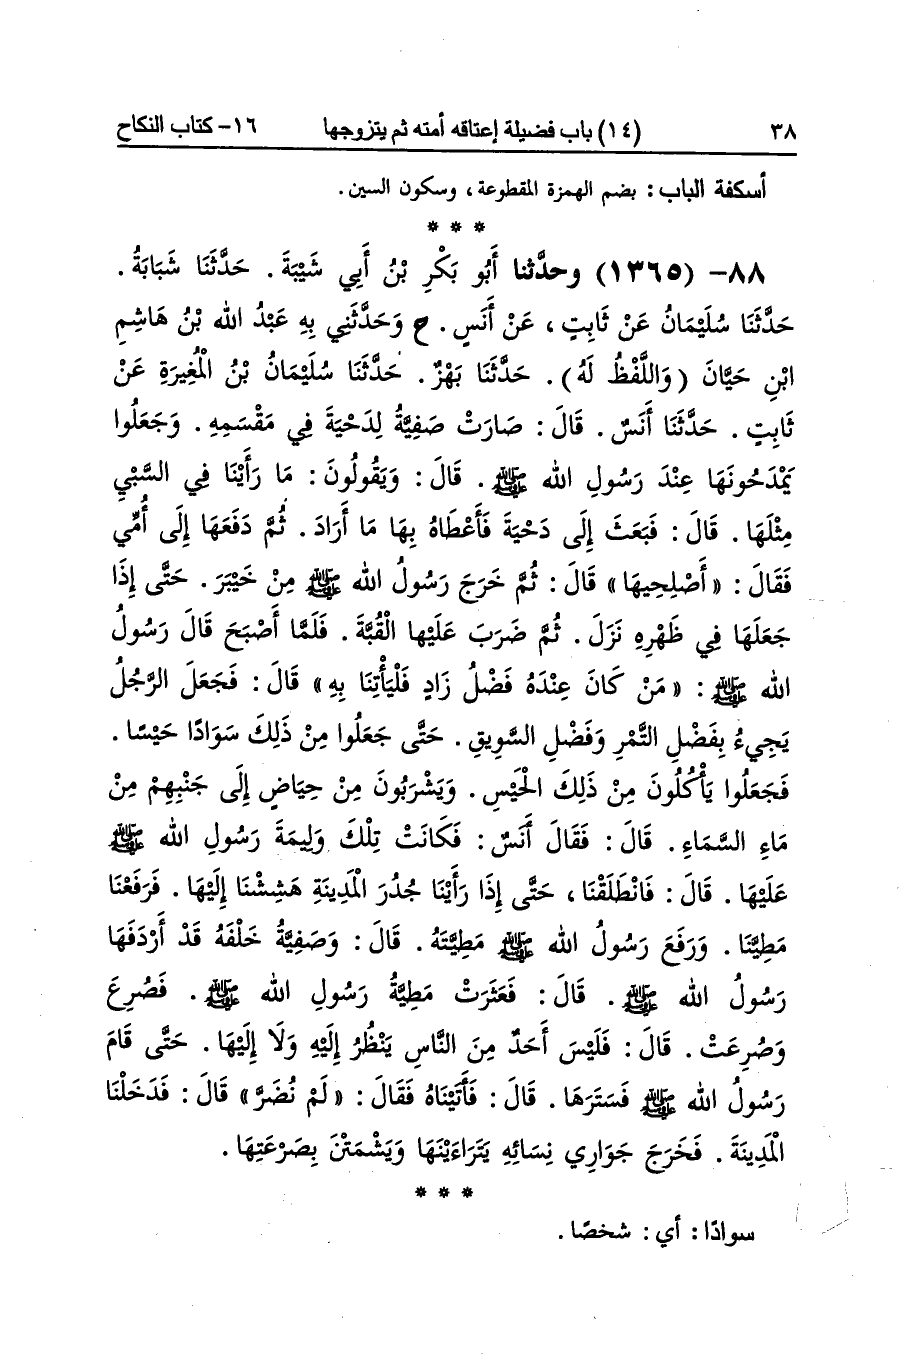 ٣٨ (١٤) باب فضيلة إعتاقه أمته ثم يتزوجها ١٦- كتاب النكاح
أسكفة الباب: بضم الهمزة المقطوعة، وسكون السين.
* * *
٨٨- (١٣٦٥) وحدَّثنا أَبُو بَكْرِ بْنُ أَبِي شَيْبَةَ. حَدَّثَنَا شَبَابَةُ.
حَدَّثَنَا سُلَيْمَانُ عَنْ ثَابِتٍ، عَنْ أَنَسٍ. ح وَحَدَّثَنِي بِهِ عَبْدُ الله بْنُ هَاشِمِ
ابْنِ حَيَّانَ (وَاللَّفْظُ لَهُ). حَدَّثَنَا بَهْزٌ. حَدَّثَنَا سُلَيْمَانُ بْنُ الْمُغِيرَةِ عَنْ
ثَابِتٍ. حَدَّثَنَا أَنَسٌ. قَالَ: صَارَتْ صَفِيَّةُ لِدَحْيَةَ فِي مَقْسَمِهِ. وَجَعَلُوا
يَمْدَحُونَهَا عِنْدَ رَسُولِ الله ﷺ. قَالَ: وَيَقُولُونَ: مَا رَأَيْنَا فِي السَّبْيِ
مِثْلَهَا. قَالَ: فَبَعَثَ إِلَى دَحْيَةَ فَأَعْطَاهُ بِهَا مَا أَرَادَ. ثُمَّ دَفَعَهَا إِلَى أُمِّي
فَقَالَ: «أَصْلِحِيهَا» قَالَ: ثُمَّ خَرَجَ رَسُولُ الله ﷺ مِنْ خَيْبَرَ. حَتَّى إِذَا
جَعَلَهَا فِي ظَهْرِهِ نَزَلَ. ثُمَّ ضَرَبَ عَلَيْها الْقُبَّةَ. فَلَمَّا أَصْبَحَ قَالَ رَسُولُ
الله ﷺ: «مَنْ كَانَ عِنْدَهُ فَضْلُ زَادٍ فَلْيَأْتِنَا بِهِ» قَالَ: فَجَعَلَ الرَّجُلُ
يَجِيءُ بِفَضْلِ التَّمْرِ وَفَضْلِ السَّوِيقِ. حَتَّى جَعَلُوا مِنْ ذَلِكَ سَوَادًا حَيْسًا.
فَجَعَلُوا يَأْكُلُونَ مِنْ ذَلِكَ الْحَيْسِ. وَيَشْرَبُونَ مِنْ حِيَاضٍ إِلَى جَنْبِهِمْ مِنْ
مَاءِ السَّمَاءِ. قَالَ: فَقَالَ أَنَسٌ: فَكَانَتْ تِلْكَ وَلِيمَةَ رَسُولِ الله ﷺ
عَلَيْهَا. قَالَ: فَانْطَلَقْنَا، حَتَّى إِذَا رَأَيْنَا جُدُرَ الْمَدِينَةِ هَشِشْنَا إِلَيْهَا. فَرَفَعْنَا
مَطِيَّنَا. وَرَفَعَ رَسُولُ الله ﷺ مَطِيَّتَهُ. قَالَ: وَصَفِيَّةُ خَلْفَهُ قَدْ أَرْدَفَهَا
رَسُولُ الله ﷺ. قَالَ: فَعَثَرَتْ مَطِيَّةُ رَسُولِ الله ﷺ. فَصُرِعَ
وَصُرِعَتْ. قَالَ: فَلَيْسَ أَحَدٌ مِنَ النَّاسِ يَنْظُرُ إِلَيْهِ وَلَا إِلَيْهَا. حَتَّى قَامَ
رَسُولُ الله ﷺ فَسَتَرَهَا. قَالَ: فَأَتَيْنَاهُ فَقَالَ: «لَمْ نُضَرَّ» قَالَ: فَدَخَلْنَا
الْمَدِينَةَ. فَخَرَجَ جَوَارِي نِسَائِهِ يَتَرَاءَيْنَهَا وَيَشْمَتْنَ بِصَرْعَتِهَا.
* * *
سوادًا: أي: شخصًا.